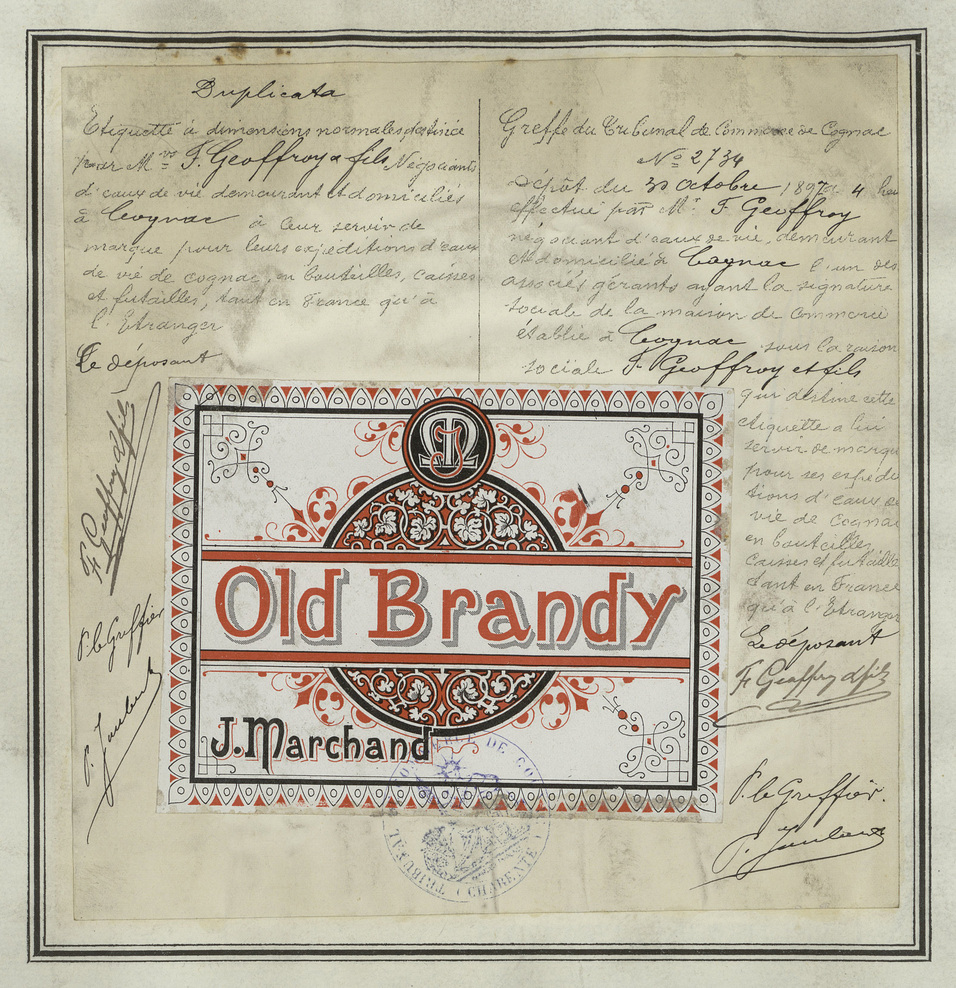 Duplicata
Etiquette à dimensions normales destinée
pour Mrs F. Geoffroy & fils Négociants
d'eaux de vie demeurant et domiciliés
à Cognac à leur servir de
marque pour leurs expéditions d'eaux
de vie de cognac, en bouteilles, caisses
et futailles, tant en France qu'à
l'Etranger
Le déposant
F Geoffroy & fils
P. le Greffier
Greffe du Tribunal de Commerce de Cognac
No 2734
Dépôt du 30 Octobre 1897 à 4 heu
effectué par Mr. F. Geoffroy
négociant d'eaux de vie, demeurant
et domicilié à Cognac l'un des
associés gérants ayant la signature
sociale de la maison de Commerce
établie à Cognac sous la raison
sociale F. Geoffroy et fils
qui destine cette
étiquette a lui
servir de marque
pour ses expédi
tions d'eaux de
vie de Cognac
en bouteilles,
caisses et futailles
tant en France
qu'à l'Etranger
Le déposant
F Geoffroy & fils
P. le Greffier.
Old Brandy
J. Marchand
TRIBUNAL DE CO
(CHARENTE)